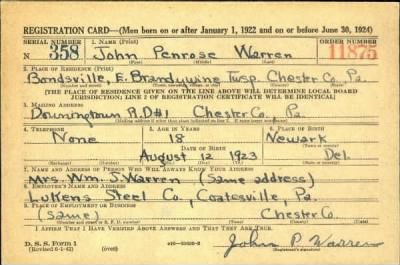 REGISTRATION CARD—(Men born on or after January 1, 1922 and on or before June 30, 1924)
SERIAL NUMBER 1. NAME (Print) ORDER NUMBER
N 358 John Penrose Warren 11875
2. PLACE OF RESIDENCE (Print)
Bondsville, E. Brandywine Twsp. Chester Co. Pa.
(THE PLACE OF RESIDENCE GIVEN ON THE LINE ABOVE WILL DETERMINE LOCAL BOARD
JURISDICTION; LINE 2 OF REGISTRATION CERTIFICATE WILL BE IDENTICAL)
3. MAILING ADDRESS
Downingtown R.D#1 Chester Co. Pa.
4. TELEPHONE 5. AGE IN YEARS 6. PLACE OF BIRTH
None 18 Newark
DATE OF BIRTH
August 12 1923 Del.
7. NAME AND ADDRESS OF PERSON WHO WILL ALWAYS KNOW YOUR ADDRESS
Mrs. Wm. S. Warren (Same address)
8. EMPLOYER'S NAME AND ADDRESS
Lukens Steel Co., Coatesville, Pa.
9. PLACE OF EMPLOYMENT OR BUSINESS
(Same) Chester Co.
I AFFIRM THAT I HAVE VERIFIED ABOVE ANSWERS AND THAT THEY ARE TRUE.
D. S. S. Form 1
(Revised 6-1-42) (over) John P. Warren